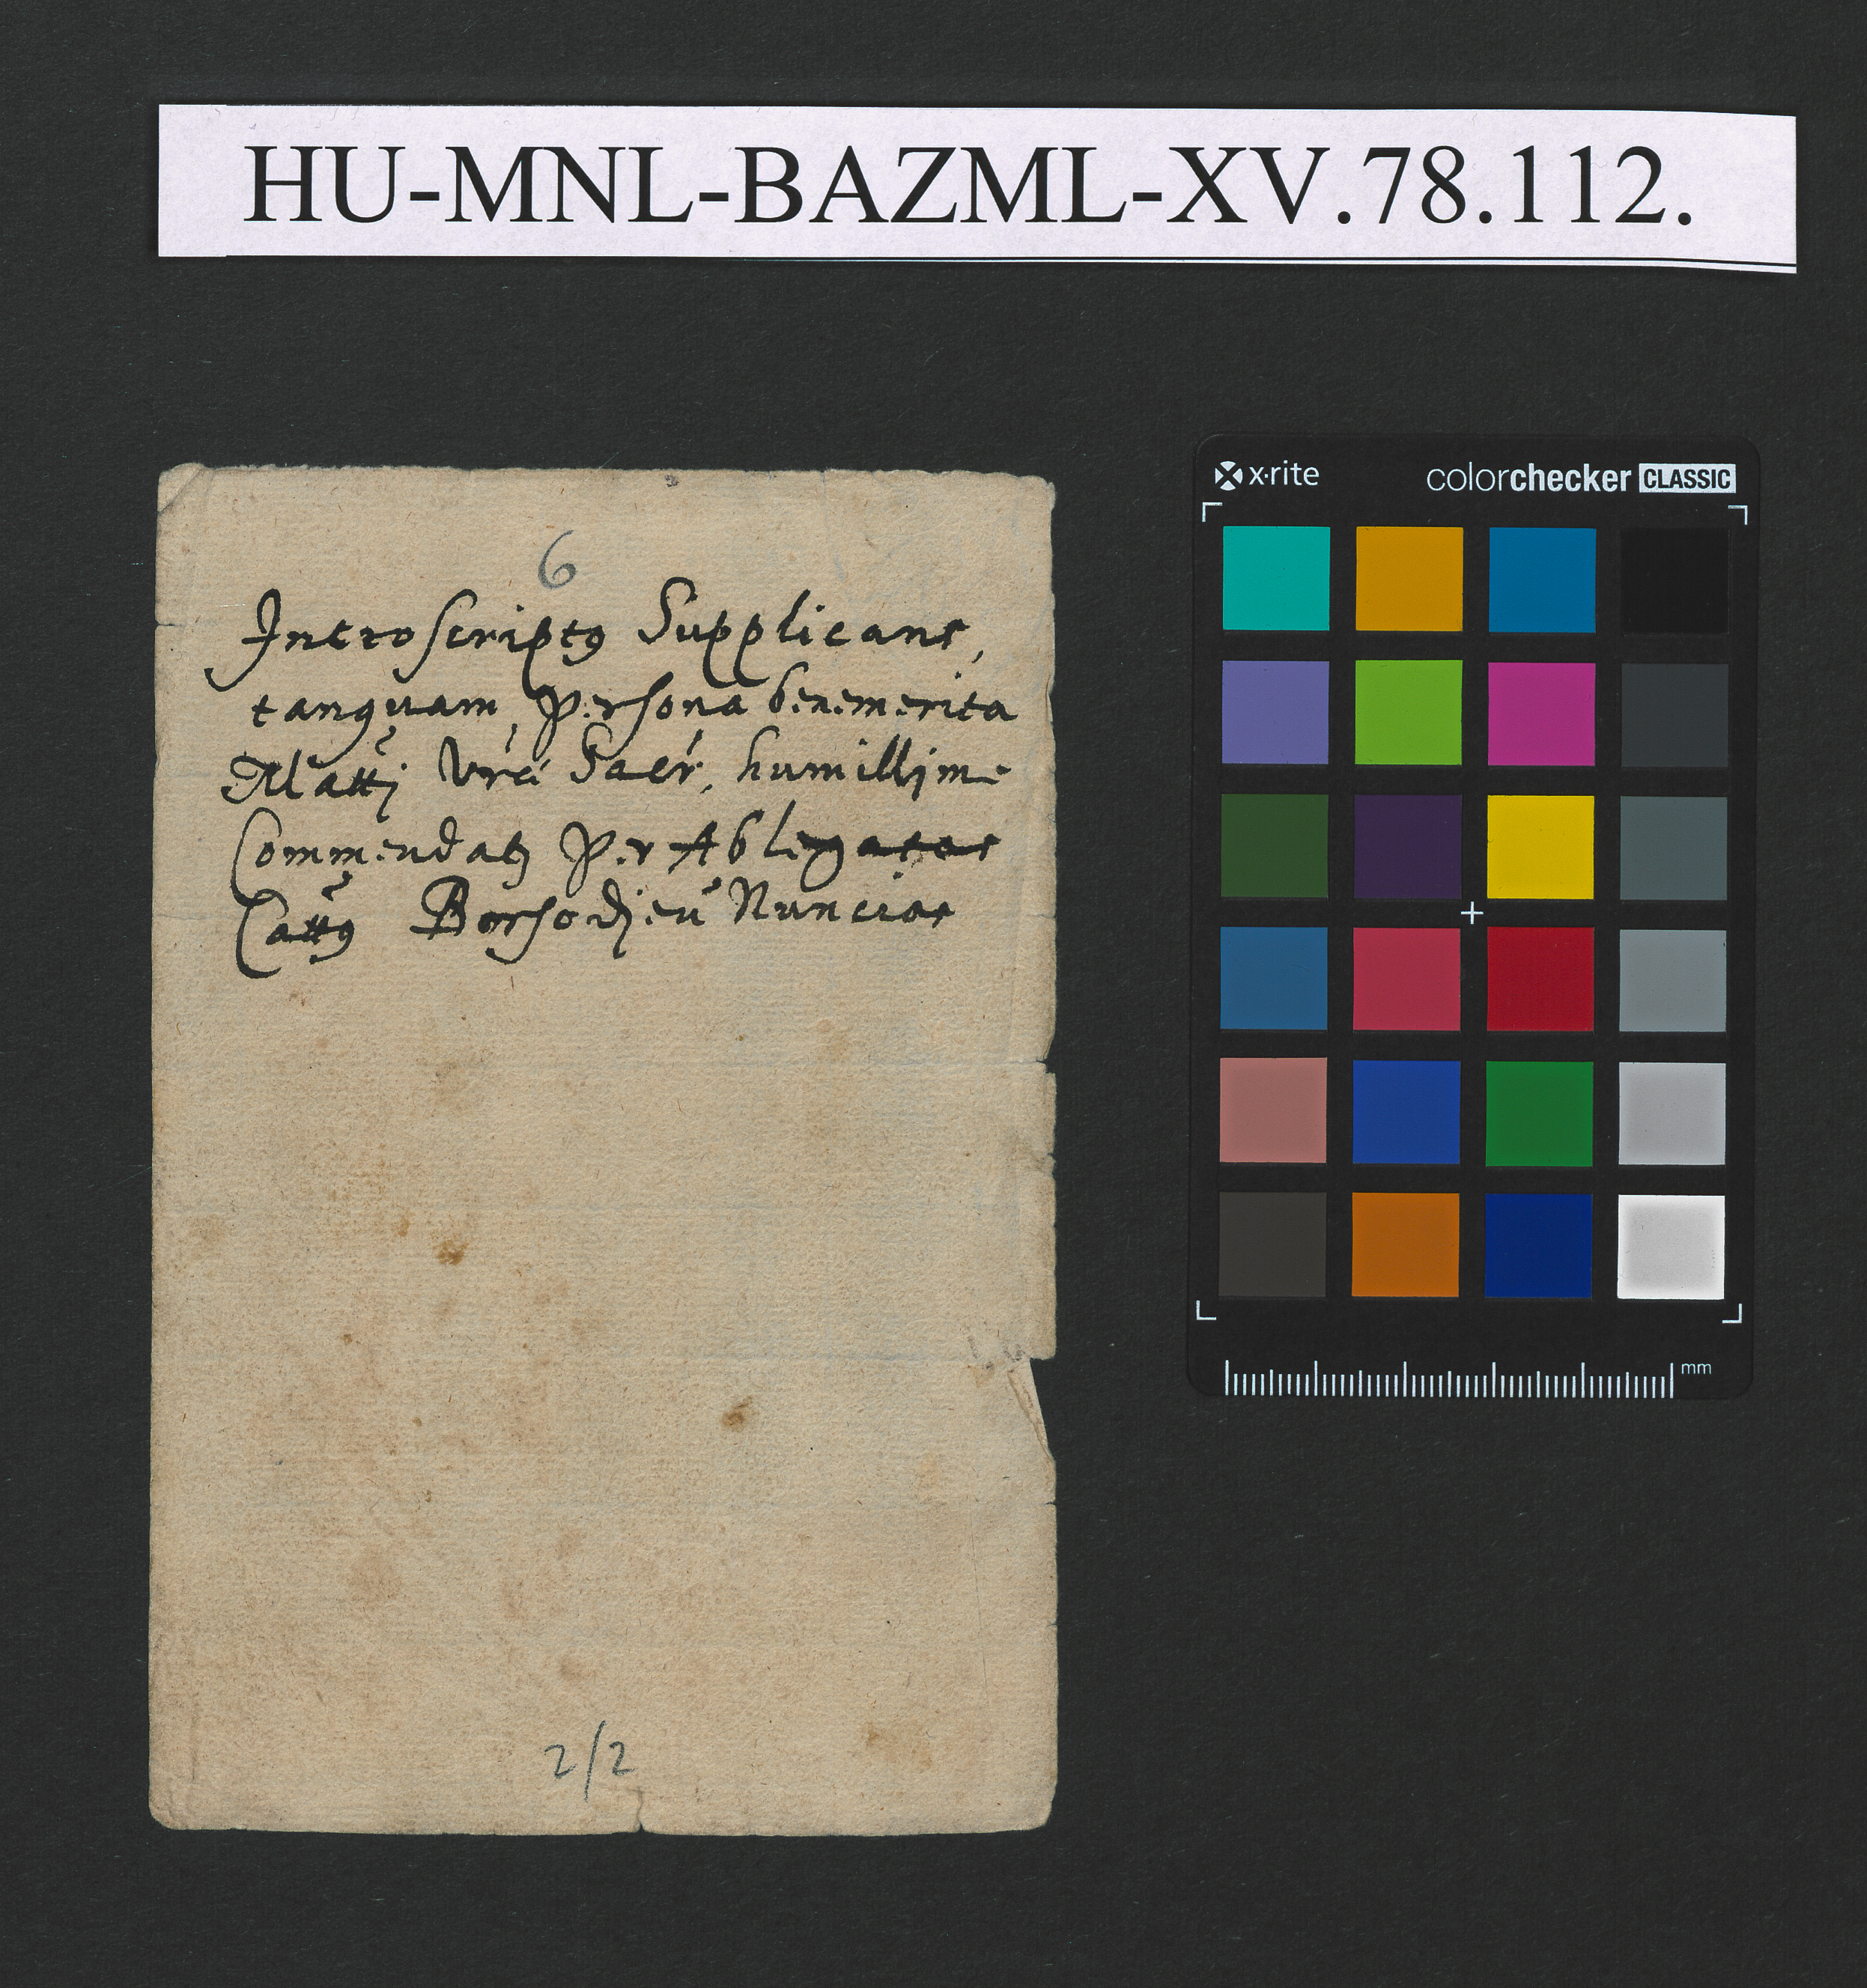 HU-MNL-BAZML-XV.78.112.
x·rite colorchecker CLASSIC
6
Introscriptꝯ Supplicans,
tanquam, Persona benemerita
Matti Vrae Sacr, humillime
Commendatꝫ Per Ablegatos
Cattꝯ Borsodien Nuncios
mm
2/2